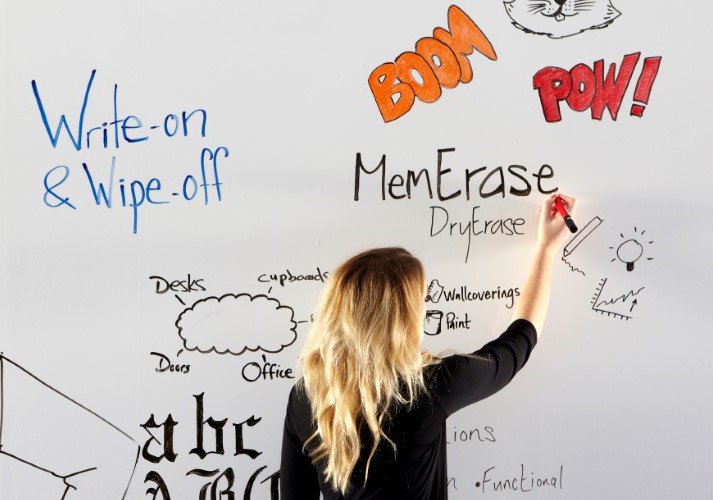 BOOM
POW!
Write-on
& Wipe-off
MemErase
DryErase
Desks
cupboards
Wallcoverings
Paint
Doors
Office
abc
ABC
• Functional